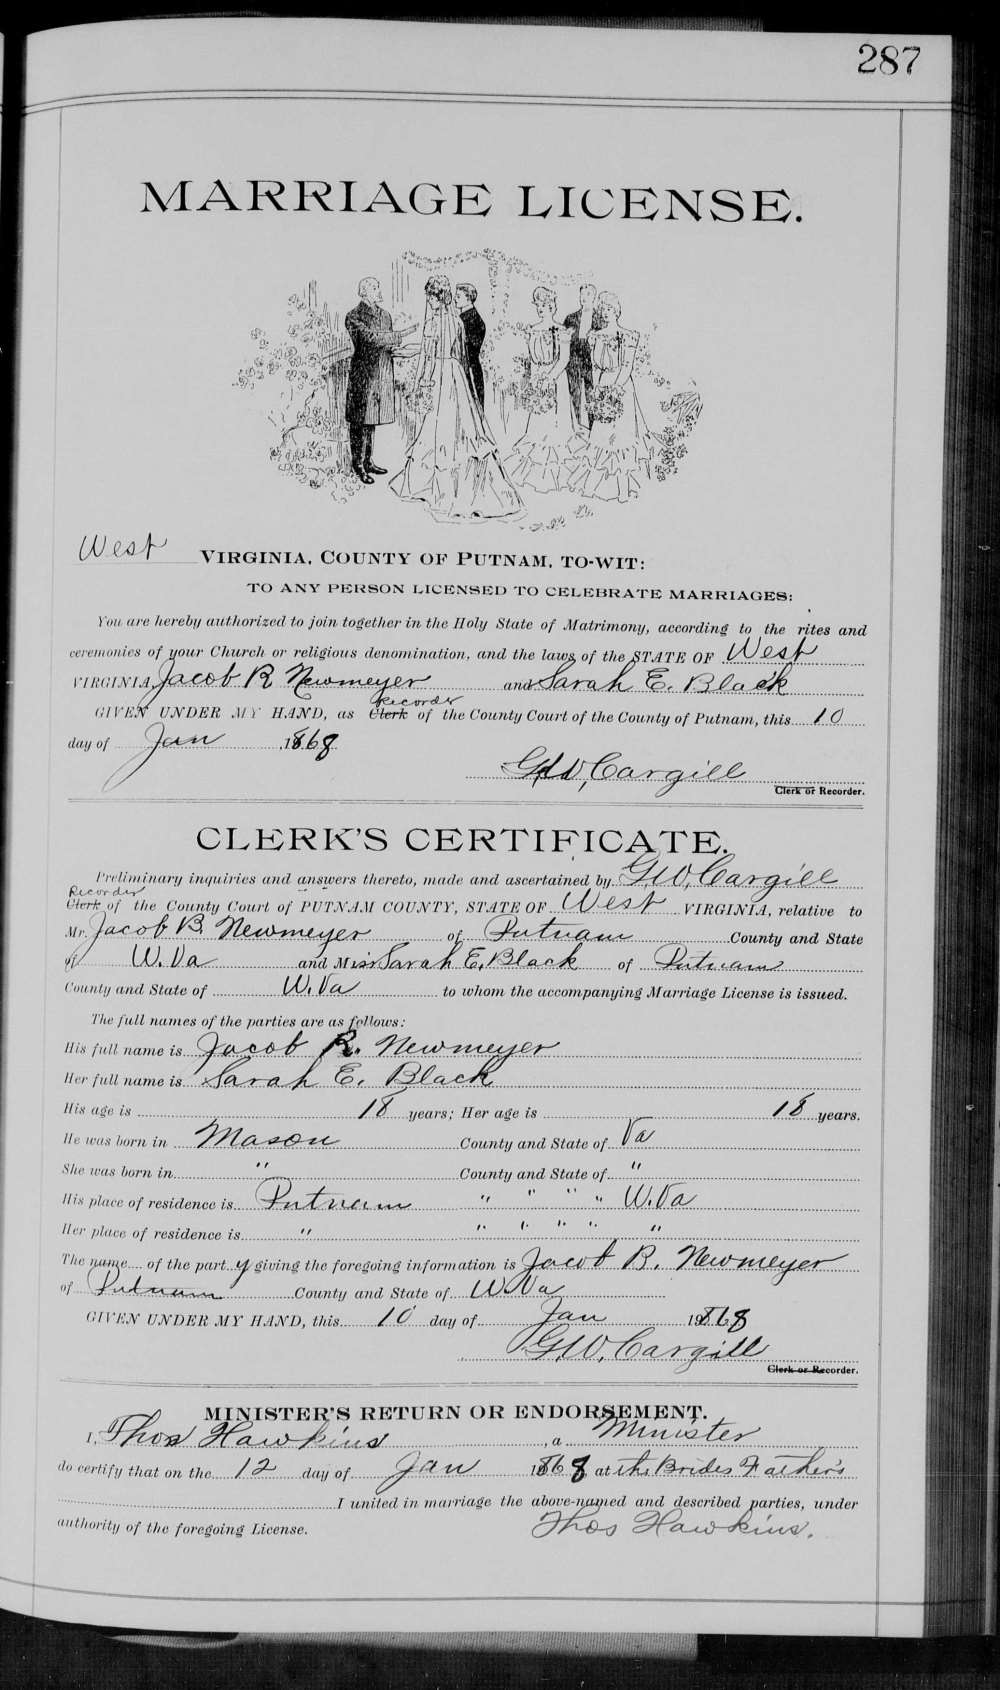 287
MARRIAGE LICENSE.
West VIRGINIA, COUNTY OF PUTNAM, TO-WIT:
TO ANY PERSON LICENSED TO CELEBRATE MARRIAGES:
You are hereby authorized to join together in the Holy State of Matrimony, according to the rites and
ceremonies of your Church or religious denomination, and the laws of the STATE OF West
VIRGINIA, Jacob R Newmeyer and Sarah E. Black
Recorder
GIVEN UNDER MY HAND, as Clerk of the County Court of the County of Putnam, this 10
day of Jan, 1868
G.W. Cargill
Clerk or Recorder.
CLERK'S CERTIFICATE.
Preliminary inquiries and answers thereto, made and ascertained by G.W. Cargill
Recorder
Clerk of the County Court of PUTNAM COUNTY, STATE OF West VIRGINIA, relative to
Mr. Jacob B. Newmeyer of Putnam County and State
of W. Va and Miss Sarah E. Black of Putnam
County and State of W. Va to whom the accompanying Marriage License is issued.
The full names of the parties are as follows:
His full name is Jacob R. Newmeyer
Her full name is Sarah E. Black
His age is 18 years; Her age is 18 years.
He was born in Mason County and State of Va
She was born in " County and State of "
His place of residence is Putnam " " " " W. Va
Her place of residence is " " " " " "
The name of the party giving the foregoing information is Jacob R. Newmeyer
of Putnam County and State of W. Va
GIVEN UNDER MY HAND, this 10 day of Jan 1868
G.W. Cargill
Clerk or Recorder.
MINISTER'S RETURN OR ENDORSEMENT.
I, Thos Hawkins, a Minister
do certify that on the 12 day of Jan 1868 at the Brides Father's
I united in marriage the above-named and described parties, under
authority of the foregoing License. Thos Hawkins.